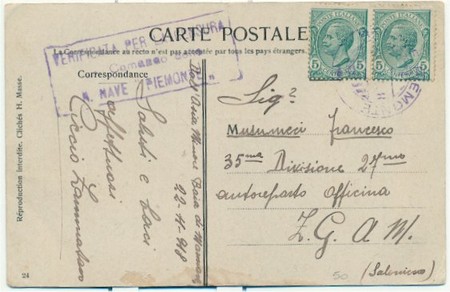 CARTE POSTALE
La Correspondance au recto n'est pas acceptée par tous les pays étrangers.
Correspondance
VERIFICATO PER CENSURA
Comando
R. NAVE PIEMONTE
POSTE ITALIANE
5
POSTE ITALIANE
5
PIEMONTE
Dall'Asia Minore Baia di
22-11-918
Saluti e baci
affettuosi
Sig.
Musumeci francesco
35ma Divisione 27mo
autoreparto Officina
Z. G. A. M.
(Salonicco)
Reproduction interdite. Clichés H. Masse.
24
50